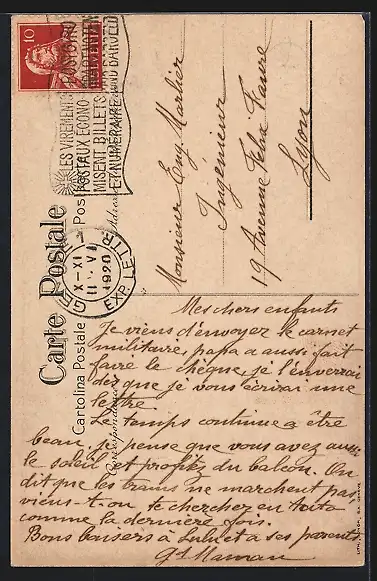 10
HELVETIA
LES VIREMENTS POSTAUX ECONO-
MISENT BILLETS
ET NUMÉRAIRE
POSTGIRO
Carte Postale
Cartolina Postale
Correspondance
GENÈVE
EXP. LETTR.
X-XI
11. VI
1920
Monsieur Eug. Marlier
Ingénieur
19 Avenue Felix Faure
Lyon
Mes chers enfants
Je viens d'envoyer le carnet
militaire, papa a aussi fait
faire le chèque, je l'enverrai
dès que je vous écrirai une
lettre.
Le temps continue a être
beau, je pense que vous avez aussi
le soleil et profitez du balcon. On
dit que les trams ne marchent pas
viens-t-on te chercher en auto
comme la dernière fois.
Bons baisers à Lulu et a ses parents
Gd Maman